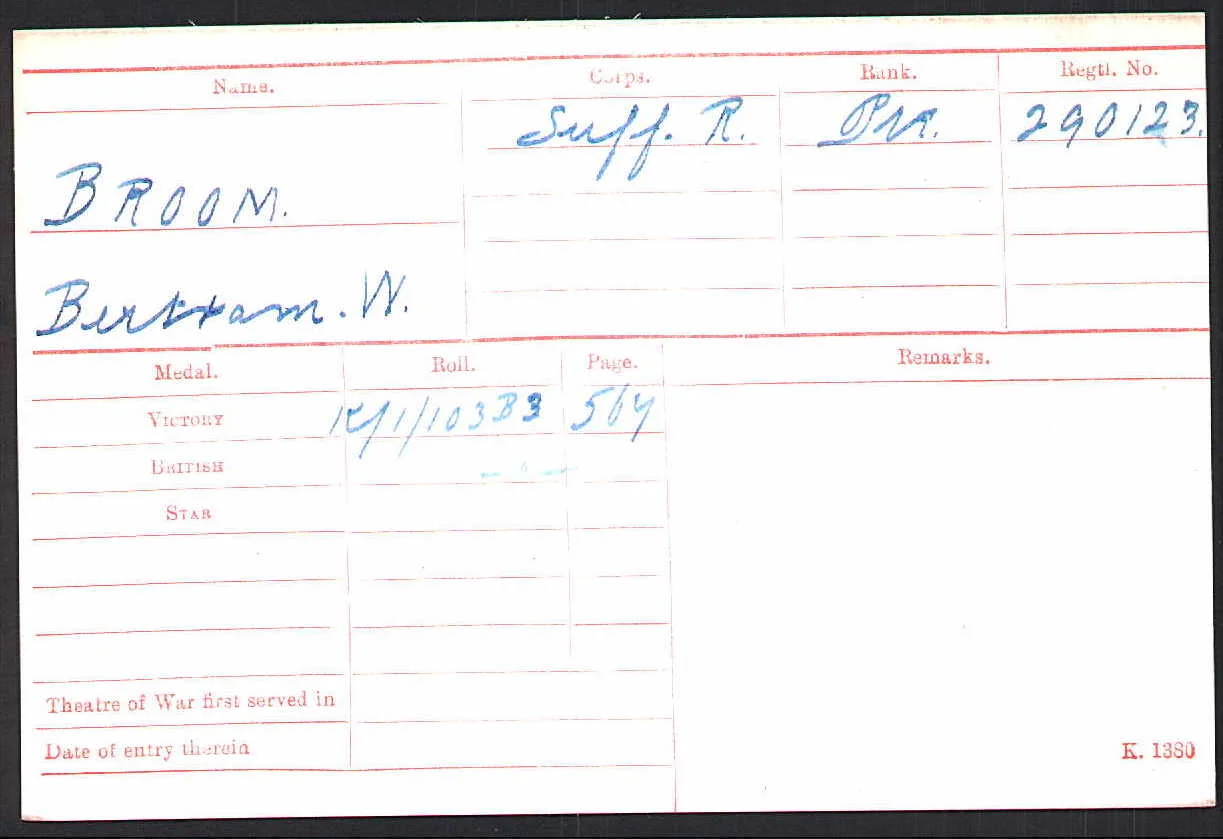 Name. Corps. Rank. Regtl. No.
Suff. R. Pte. 290123.
BROOM.
Bertram. W.
Medal. Roll. Page. Remarks.
VICTORY K/1/103B3
BRITISH — " —
STAR
Theatre of War first served in
Date of entry therein
K. 1380